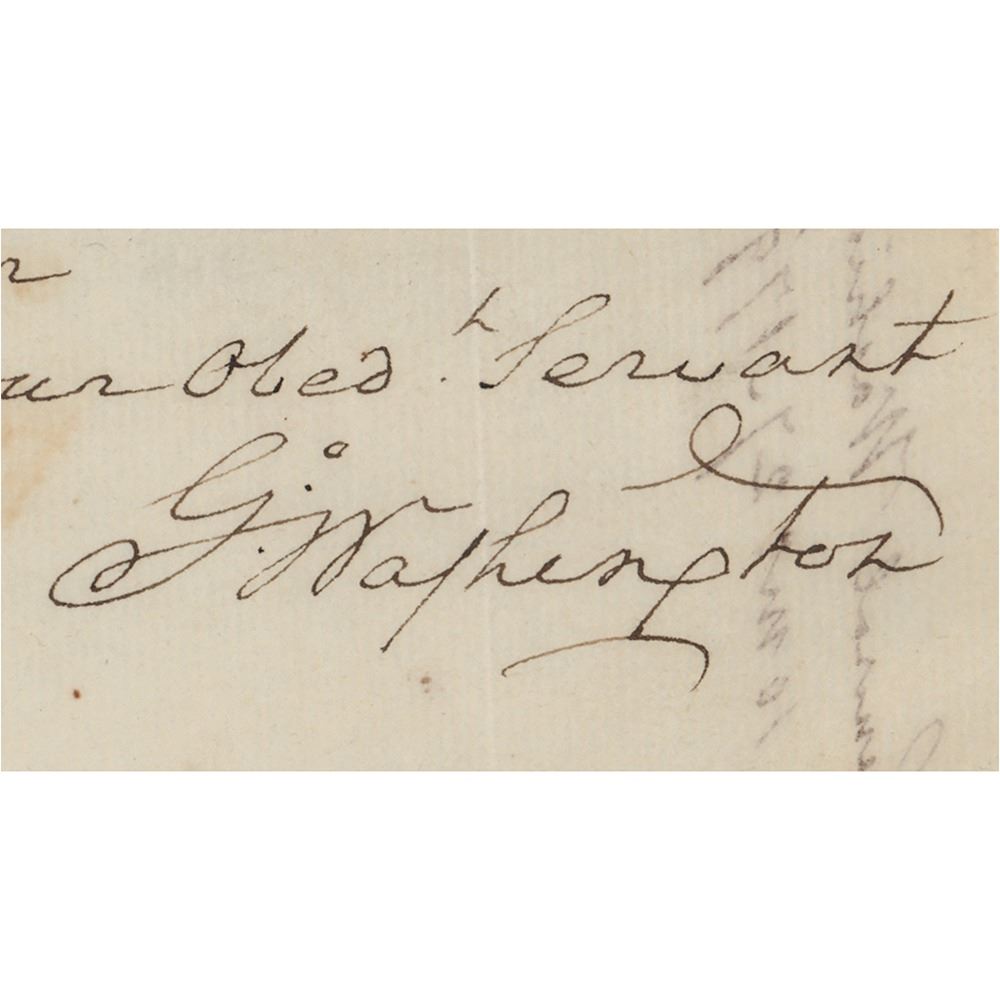 ur Obed.ʰ Servant
Gº: Washington